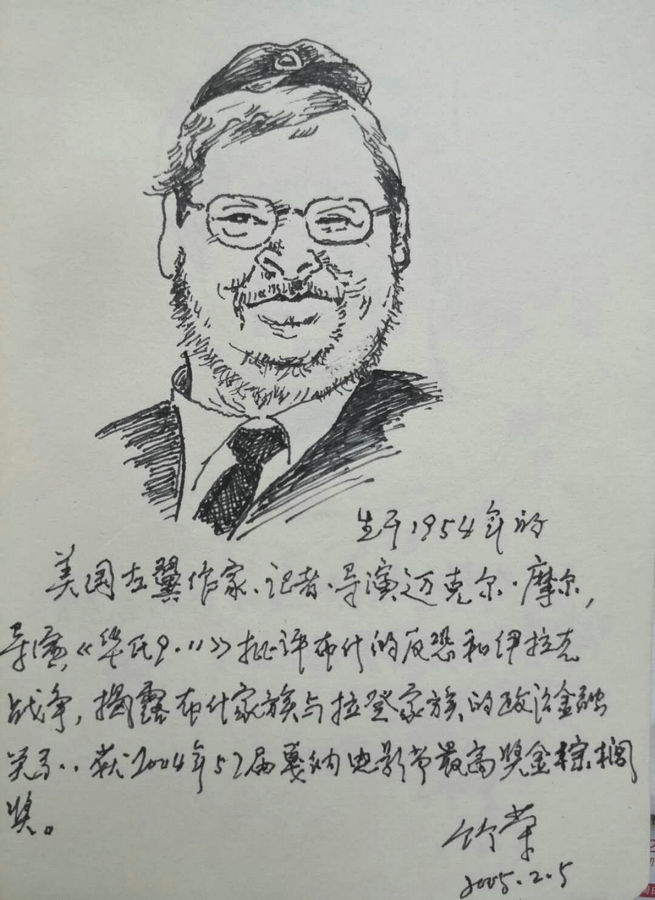 生于1954年的
美国左翼作家、记者、导演迈克尔·摩尔,
导演《华氏9·11》批评布什的反恐和伊拉克
战争,揭露布什家族与拉登家族的政治金融
关系..获2004年57届戛纳电影节最高奖金棕榈
奖。
竹荣
2005.2.5